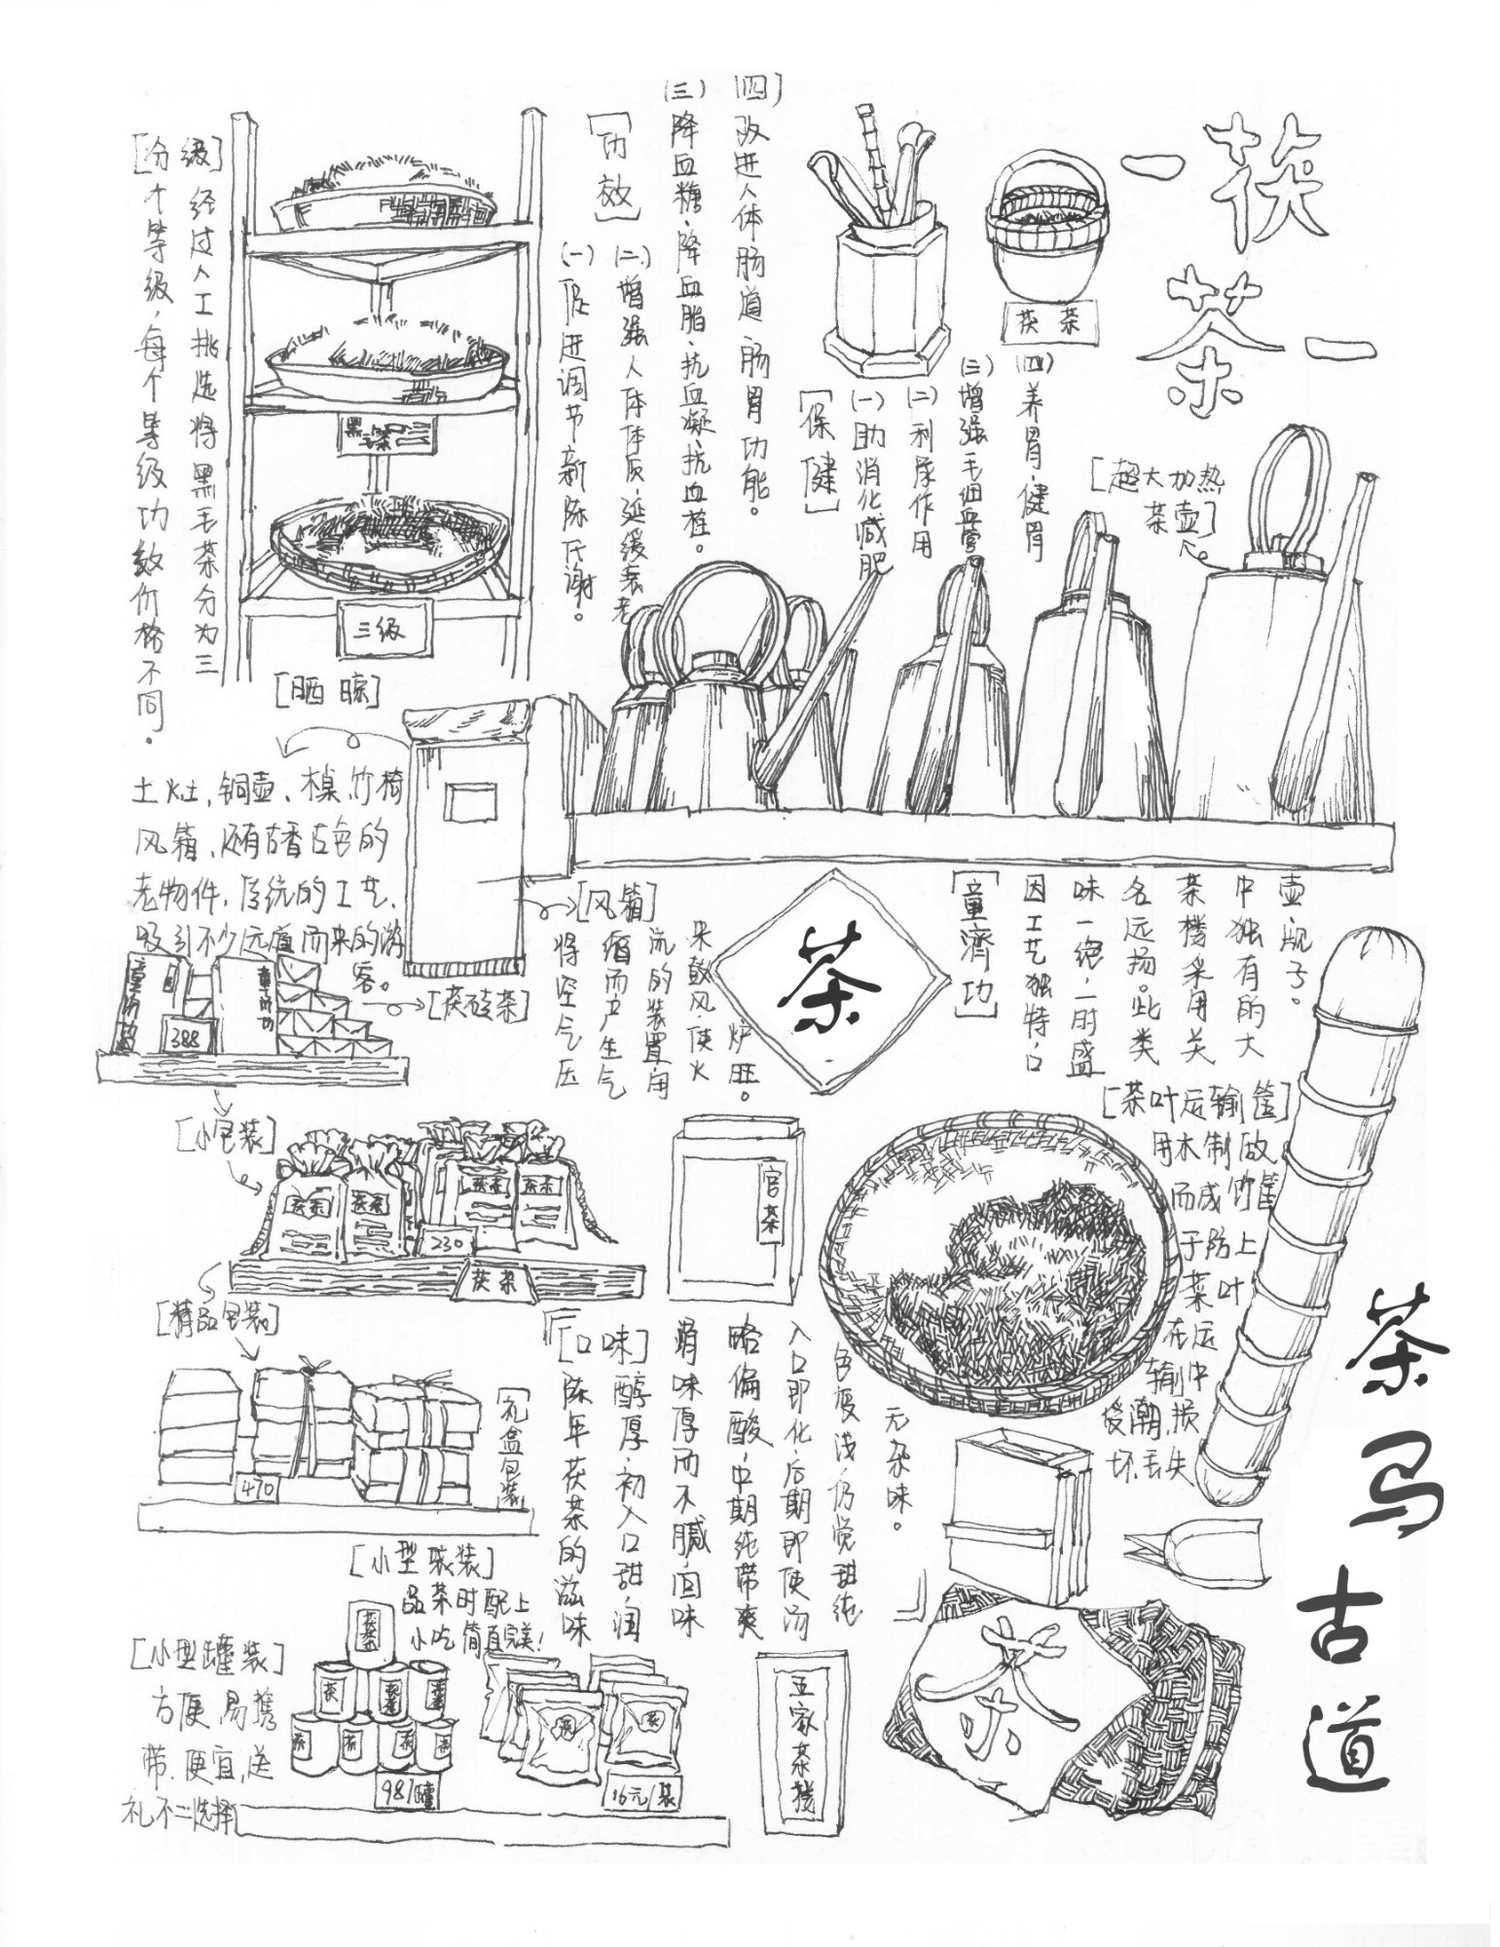 茯
茶
茯茶
[分级]
经过人工挑选将黑毛茶分为三
个等级，每个等级功效价格不同。
黑毛茶
三级
[功效]
(一)促进调节新陈代谢。
(二)增强人体体质、延缓衰老
(三)降血糖、降血脂、抗血凝、抗血栓。
(四)改进人体肠道、肠胃功能。
[保健]
(一)助消化减肥
(二)利尿作用
(三)增强毛细血管
(四)养胃、健胃
[超大加热
茶壶]
[晒晾]
土灶、铜壶、木桌竹椅
风箱、还有古香古色的
老物件、传统的工艺、
吸引不少远道而来的游
客。
[风箱]
将空气压
缩而产生气
流的装置用
来鼓风，使火
炉旺。
茶
[童济功]
因工艺独特，口
味一绝，一时盛
名远扬。此类
茶楼采用关
中独有的大
壶、舰子。
[茯砖茶]
童济功
388
[小包装]
茯茶
230
茯茶
[精品包装]
470
[礼盒包装]
官茶
[茶叶运输筐]
用木制做
而成竹筐
子防止
茶叶
在运
输中
受潮、损
坏、丢失
[口味]
陈年茯茶的滋味
醇厚，初入口甜，润
滑味厚而不腻，回味
略偏酸，中期纯带爽
入口即化，后期即使汤
色变浅，仍觉甜纯
无杂味。
[小型袋装]
品茶时配上
小吃简直完美！
[小型罐装]
方便易携
带、便宜，送
礼不二选择
98/罐
16元/袋
五家茶楼
茶
茶马古道